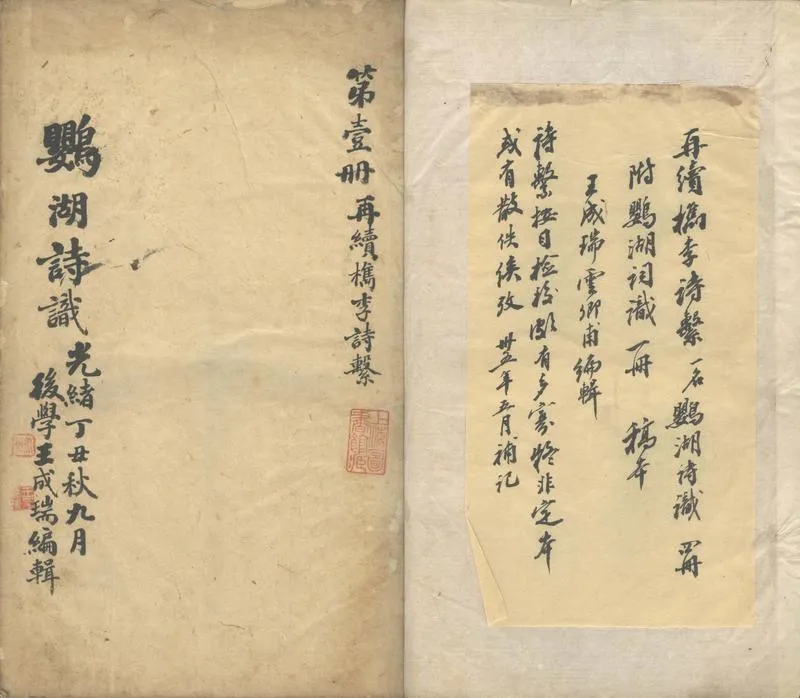 再續檇李詩繫 一名鸚湖詩識 四冊
附鸚湖詞識 一冊 稿本
王成瑞雲卿甫編輯
詩繫按目檢校頗有多寡 非定本
或有散佚俟攷 卅五年五月補記
第壹冊 再續檇李詩繫
上海圖書館藏
鸚湖詩識
光緒丁丑秋九月
後學王成瑞編輯